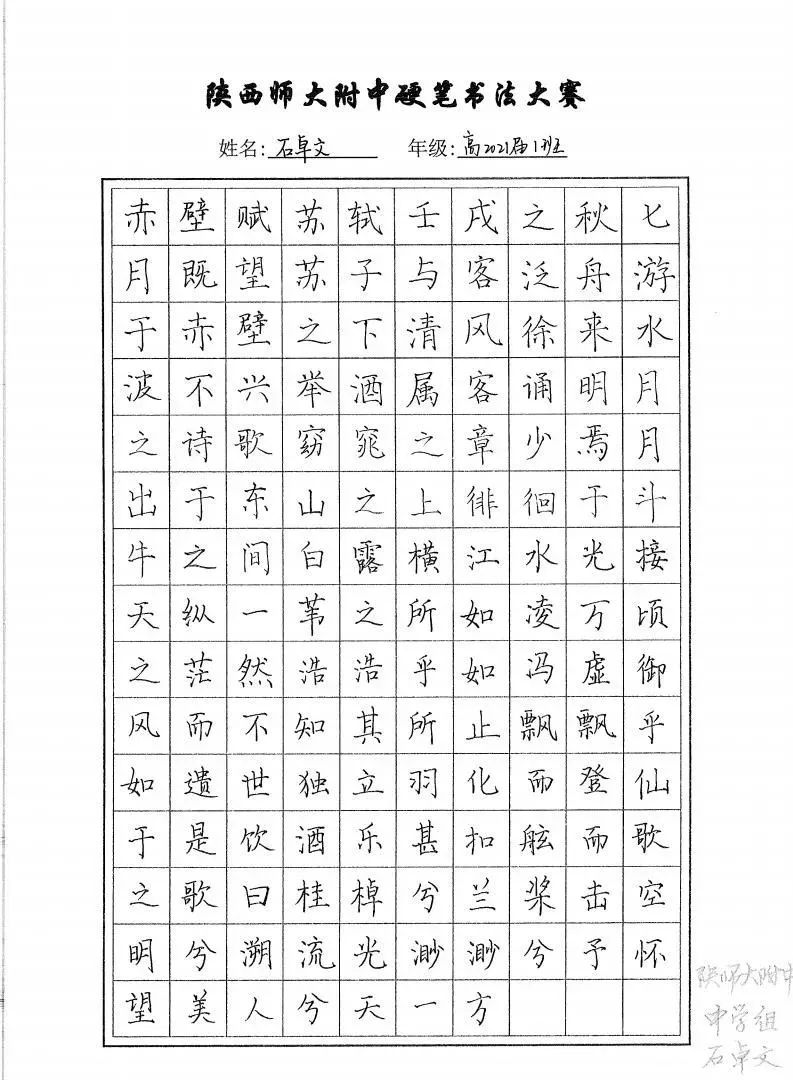 陕西师大附中硬笔书法大赛
姓名：石卓文 年级：高2021届1班
赤壁赋苏轼壬戌之秋七
月既望苏子与客泛舟游
于赤壁之下清风徐来水
波不兴举酒属客诵明月
之诗歌窈窕之章少焉月
出于东山之上徘徊于斗
牛之间白露横江水光接
天纵一苇之所如凌万顷
之茫然浩浩乎如冯虚御
风而不知其所止飘飘乎
如遗世独立羽化而登仙
于是饮酒乐甚扣舷而歌
之歌曰桂棹兮兰桨击空
明兮溯流光渺渺兮予怀
望美人兮天一方
陕师大附中
中学组
石卓文